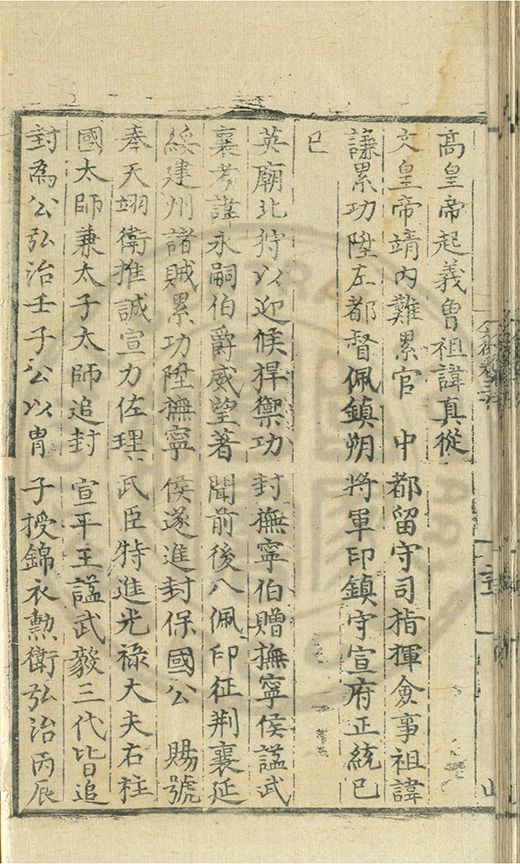 高皇帝起義曾祖諱真從
文皇帝靖內難累官 中都留守司指揮僉事祖諱
謙累功陞左都督佩鎮朔將軍印鎮守宣府正統己
巳
英廟北狩以迎候捍禦功封撫寧伯贈撫寧侯諡武
襄考諱永嗣伯爵威望著聞前後八佩印征荆襄延
綏建州諸賊累功陞撫寧侯遂進封保國公 賜號
奉天翊衛推誠宣力佐理武臣特進光祿大夫右柱
國太師兼太子太師追封 宣平王諡武毅三代皆追
封為公弘治壬子公以冑子授錦衣勲衛弘治丙辰